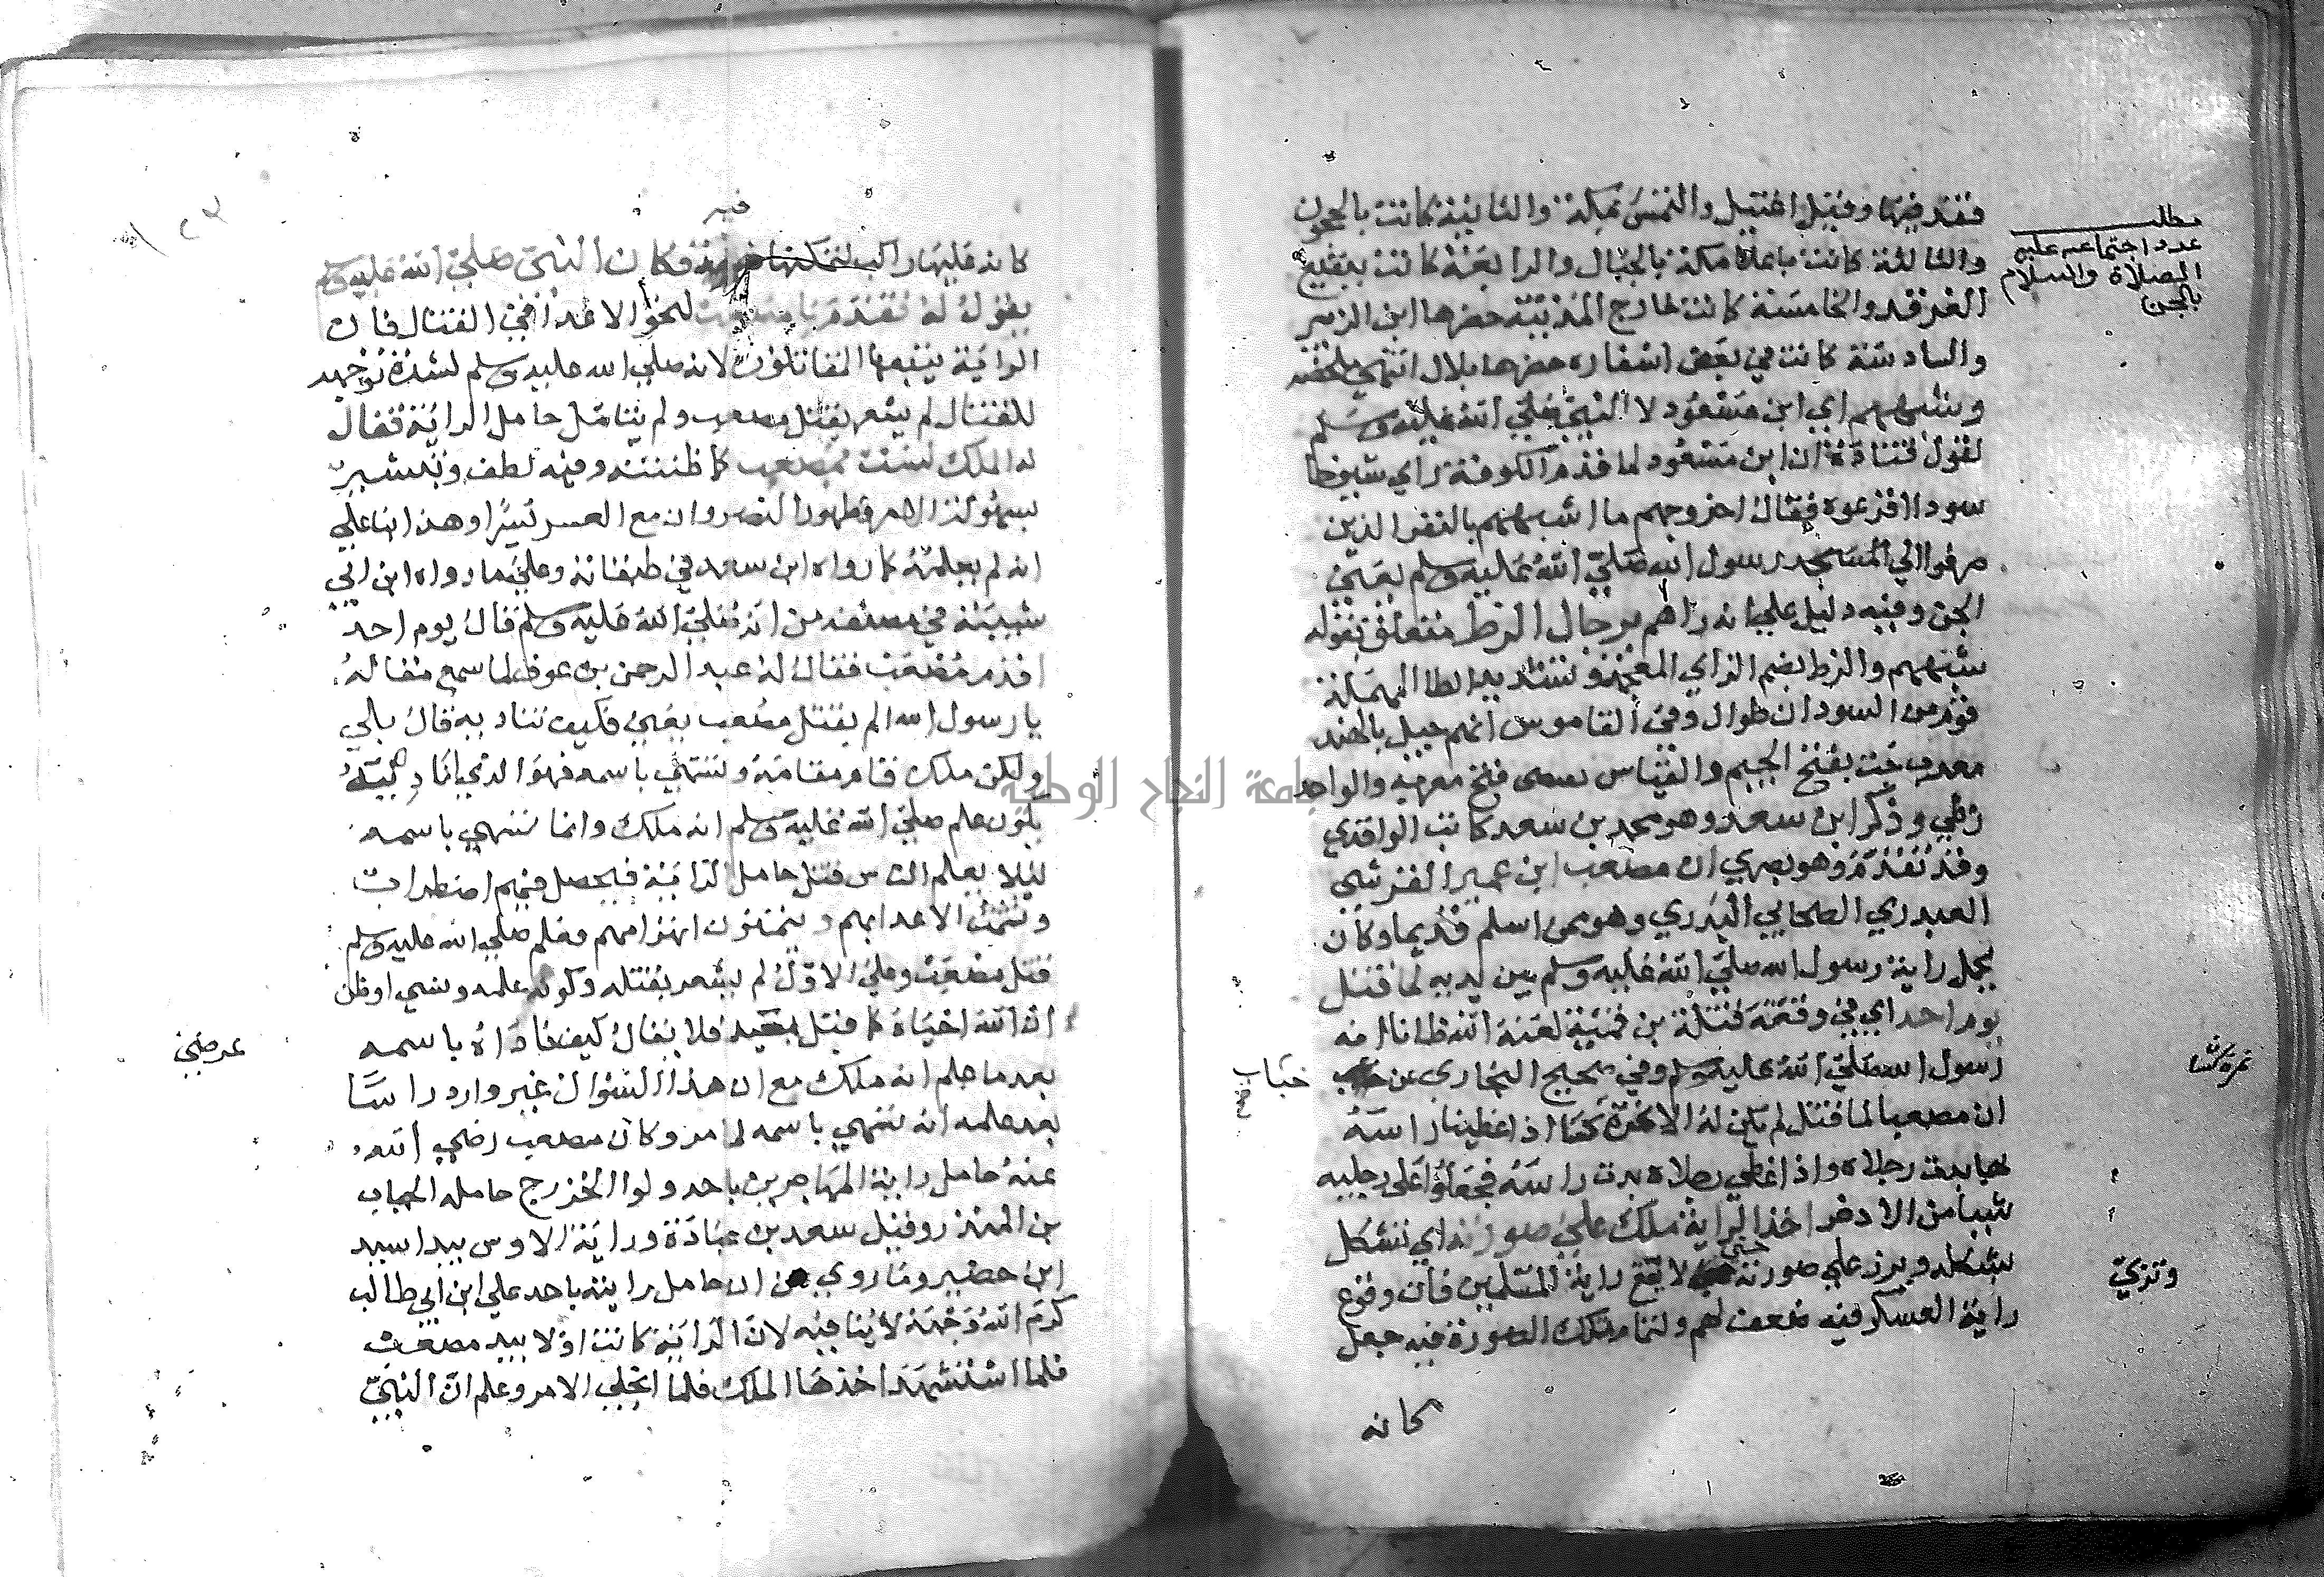 فقد فيها وقيل اغتيل والتمس بمكة والثانية كانت بالحجون
والثالثة كانت باعلا مكة بالجبال والرابعة كانت ببقيع
الغرقد والخامسة كانت خارج المدينة حضرها ابن الزبير
والسادسة كانت في بعض اسفاره حضرها بلال انتهي ملخصه
وشبههم اي ابن مسعود لا النبي صلي الله عليه وسلم
لقول قتادة ان ابن مسعود لما قدم الكوفة راي شيوخا
سودا افزعوه فقال اخروجهم ما اشبههم بالنفر الذين
صرفوا الي المسجد رسول الله صلي الله عليه وسلم يعني
الجن وفيه دليل علي انه راهم برجال الزط متعلق بقوله
شبههم والزط بضم الزاي المعجمة وتشديد الطا المهملة
قوم من السودان طوال وفي القاموس انهم جيل بالهند
معرب جت بفتح الجيم والقياس يقتضي فتح معربه والواحد
زطي وذكر ابن سعد وهو محمد بن سعد كاتب الواقدي
وقد تقدم وهو بصري ان مصعب ابن عمير القرشي
العبدري الصحابي البدري وهو ممن اسلم قديما وكان
يحمل راية رسول الله صلي الله عليه وسلم بين يديه لما قتل
يوم احد اي في وقعته قتله بن قمئة لعنه الله ظانا انه
رسول الله صلي الله عليه وسلم وفي صحيح البخاري عن
خباب
صح
ان مصعبا لما قتل لم يكن له الا نمرة كنا اذا غطينا راسه
بها بدت رجلاه واذا غطي رجلاه بدت راسه فجعلوا علي رجليه
شيبا من الاذخر اخذ الراية ملك علي صورته اي تشكل
بشكله وبرز علي صورته حتي لا تقع راية المسلمين فان وقوع
راية العسكر فيه ضعف لهم ولتمام تلك الصورة فيه جعل
كانه
مطلب
عدد اجتماعه عليه
الصلاة والسلام
بالجن
وتزيّ
فيه
كانه عليها راكب لتمكنها فكان النبي صلي الله عليه وسلم
يقول له تقدم يا مصعب لنحو الاعدا في القتال فان
الراية يتبعها المقاتلون لانه صلي الله عليه وسلم لشدة توجهه
للقتال لم يشعر بقتل مصعب ولم يتامل حامل الراية فقال
له الملك لست بمصعب كما ظننته وفيه لطف وتبشير
بسهولة الامر وظهور النصر وان مع العسر يسرا وهذا بنا علي
انه لم يعلمه كما رواه ابن سعد في طبقاته وعلي ما رواه ابن ابي
شيبة في مصنفه من انه صلي الله عليه وسلم قال يوم احد
اقدم مصعب فقال له عبد الرحمن بن عوف لما سمع مقاله
يا رسول الله الم يقتل مصعب يعني فكيف تناديه قال بلي
ولكن ملك قام مقامه وتسمي باسمه فهو الذي ناديته
يكون علم صلي الله عليه وسلم انه ملك وانما تسمي باسمه
ليلا يعلم الناس قتل حامل الراية فيحصل فيهم اضطراب
وتشمت الاعدا بهم ويتمنون انهزامهم فعلم صلي الله عليه وسلم
قتل مصعب وعلي الاول لم يشعر بقتله وكونه علمه ونسي او ظن
ان الله احياه كما قيل بعيد فلا يقال كيف ناداه باسمه
بعد ما علم انه ملك مع ان هذا السوال غير وارد راسا
بعد علمه انه تسمي باسمه لما مر وكان مصعب رضي الله
عنه حامل راية المهاجرين باحد ولوا الخزرج حامله الحباب
بن المنذر وقيل سعد بن عبادة وراية الاوس بيد اسيد
ابن حضير وما روي من ان حامل راية باحد علي ابن ابي طالب
كرم الله وجهه لا ينافيه لان الراية كانت اولا بيد مصعب
فلما استشهد اخذها الملك فلما انجلي الامر وعلم ان النبي
جامعة النجاح الوطنية